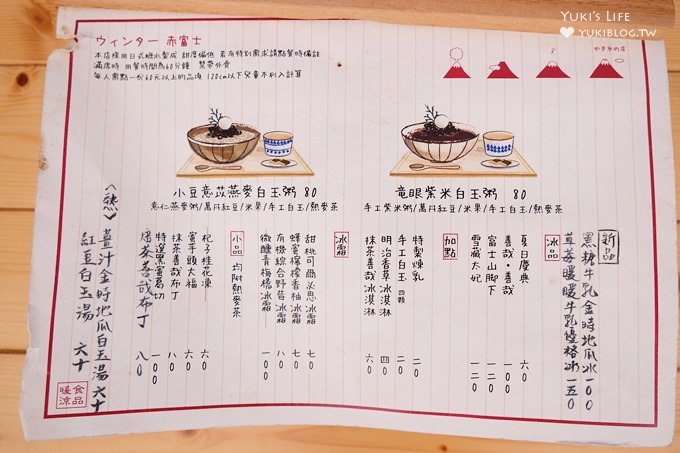 YUKI'S LIFE
YUKIBLOG.TW
ウィンター 赤富士
本店採用日式糖水製成 甜度偏低 若有特別需求請點餐時備註
滿席時 用餐時間為60分鐘 禁帶外食
每人需點一份60元以上的品項 120cm以下兒童不列入計算
かき氷の店
小豆薏苡燕麥白玉粥 80
薏仁燕麥粥/萬丹紅豆/米果/手工白玉/熱麥茶
竜眼紫米白玉粥 80
手工紫米粥/萬丹紅豆/米果/手工白玉/熱麥茶
新品
黑糖牛乳金時地瓜冰 100
草莓暖暖牛乳優格冰 150
冰品
夏日慶典 六0
善哉・善哉
富士山腳下 一二0
雪藏大妃 一二0
加點
特製煉乳 一0
手工白玉 四顆 二0
明治香草冰淇淋 四0
抹茶善哉冰淇淋 六0
冰霜
甜桃可爾必思冰霜 七0
蜂蜜檸檬香柚冰霜 七0
有機綜合野莓冰霜 八0
微醺青梅橋冰霜 一00
小品 均附熱麥茶
杞子桂花凍 六0
蜜芋頭大福 六0
抹茶善哉布丁 八0
特選黑蜜葛切 一00
焙茶善哉布丁 八0
<熱>
薑汁金時地瓜白玉湯 六十
紅豆白玉湯 六十
暖食
涼品